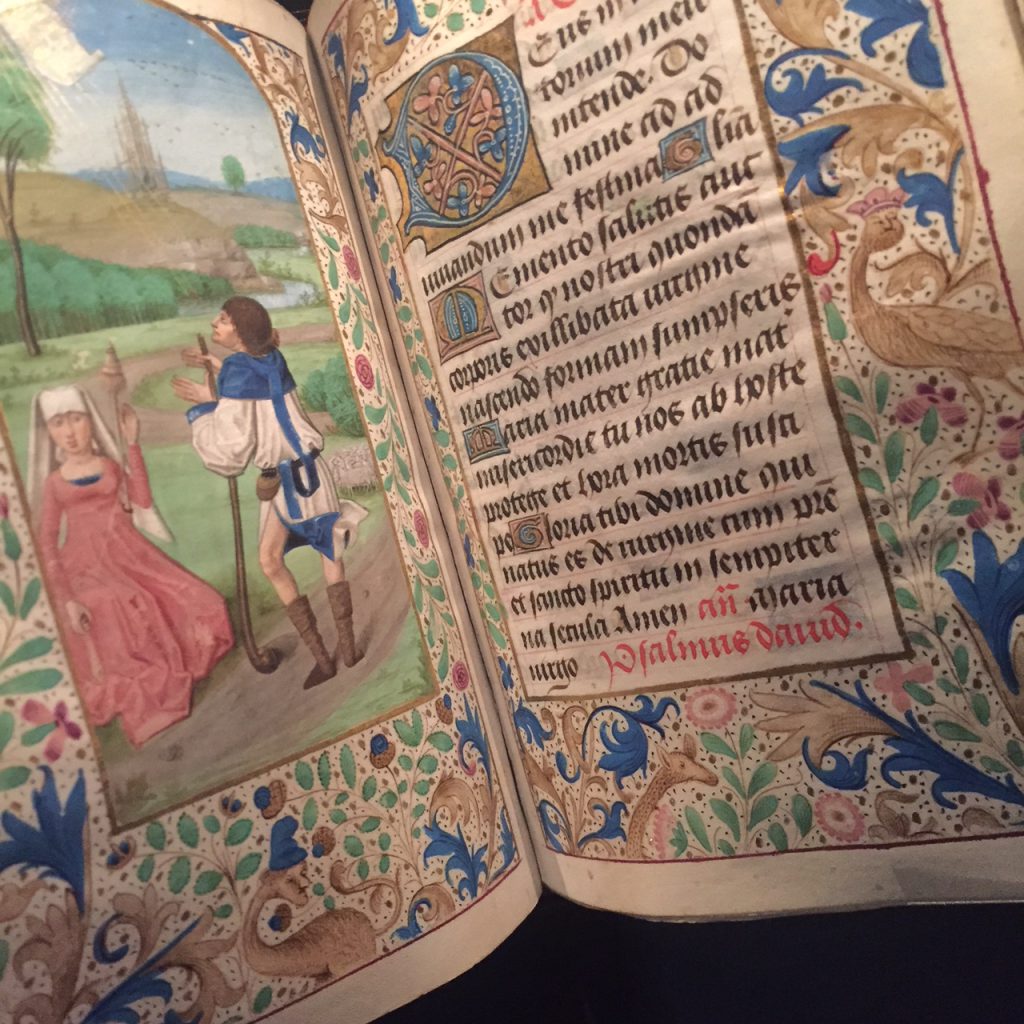 Deus in adiu
torium meu
intende. Do
mine ad ad
iuuandum me festina Glia
Memento salutis auc
tor q̄ nostri quonda
corporis exillibata uirgine
nascendo formam sumpseris
Maria mater gratie mat
misericordie tu nos ab hoste
protege et hora mortis susci
pe Gloria tibi domine qui
natus es de uirgine cum pr̄e
et sancto spiritu in sempiter
na secula Amen añ Maria
uirgo Psalmus dauid.